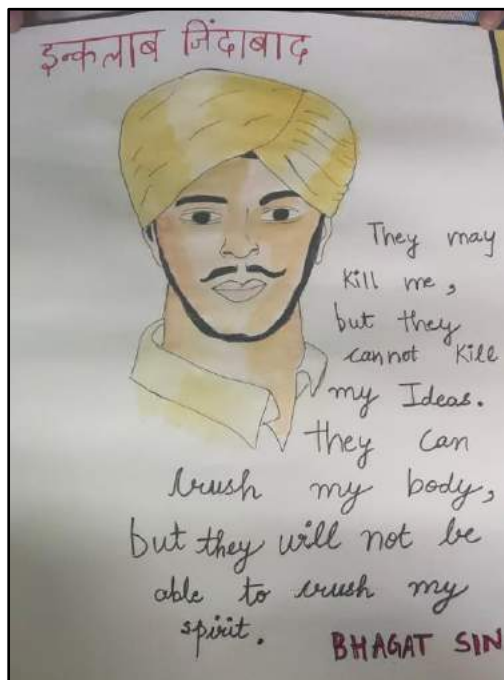 इन्कलाब जिंदाबाद
They may
kill me,
but they
cannot kill
my Ideas.
they can
crush my body,
but they will not be
able to crush my
spirit.
BHAGAT SIN